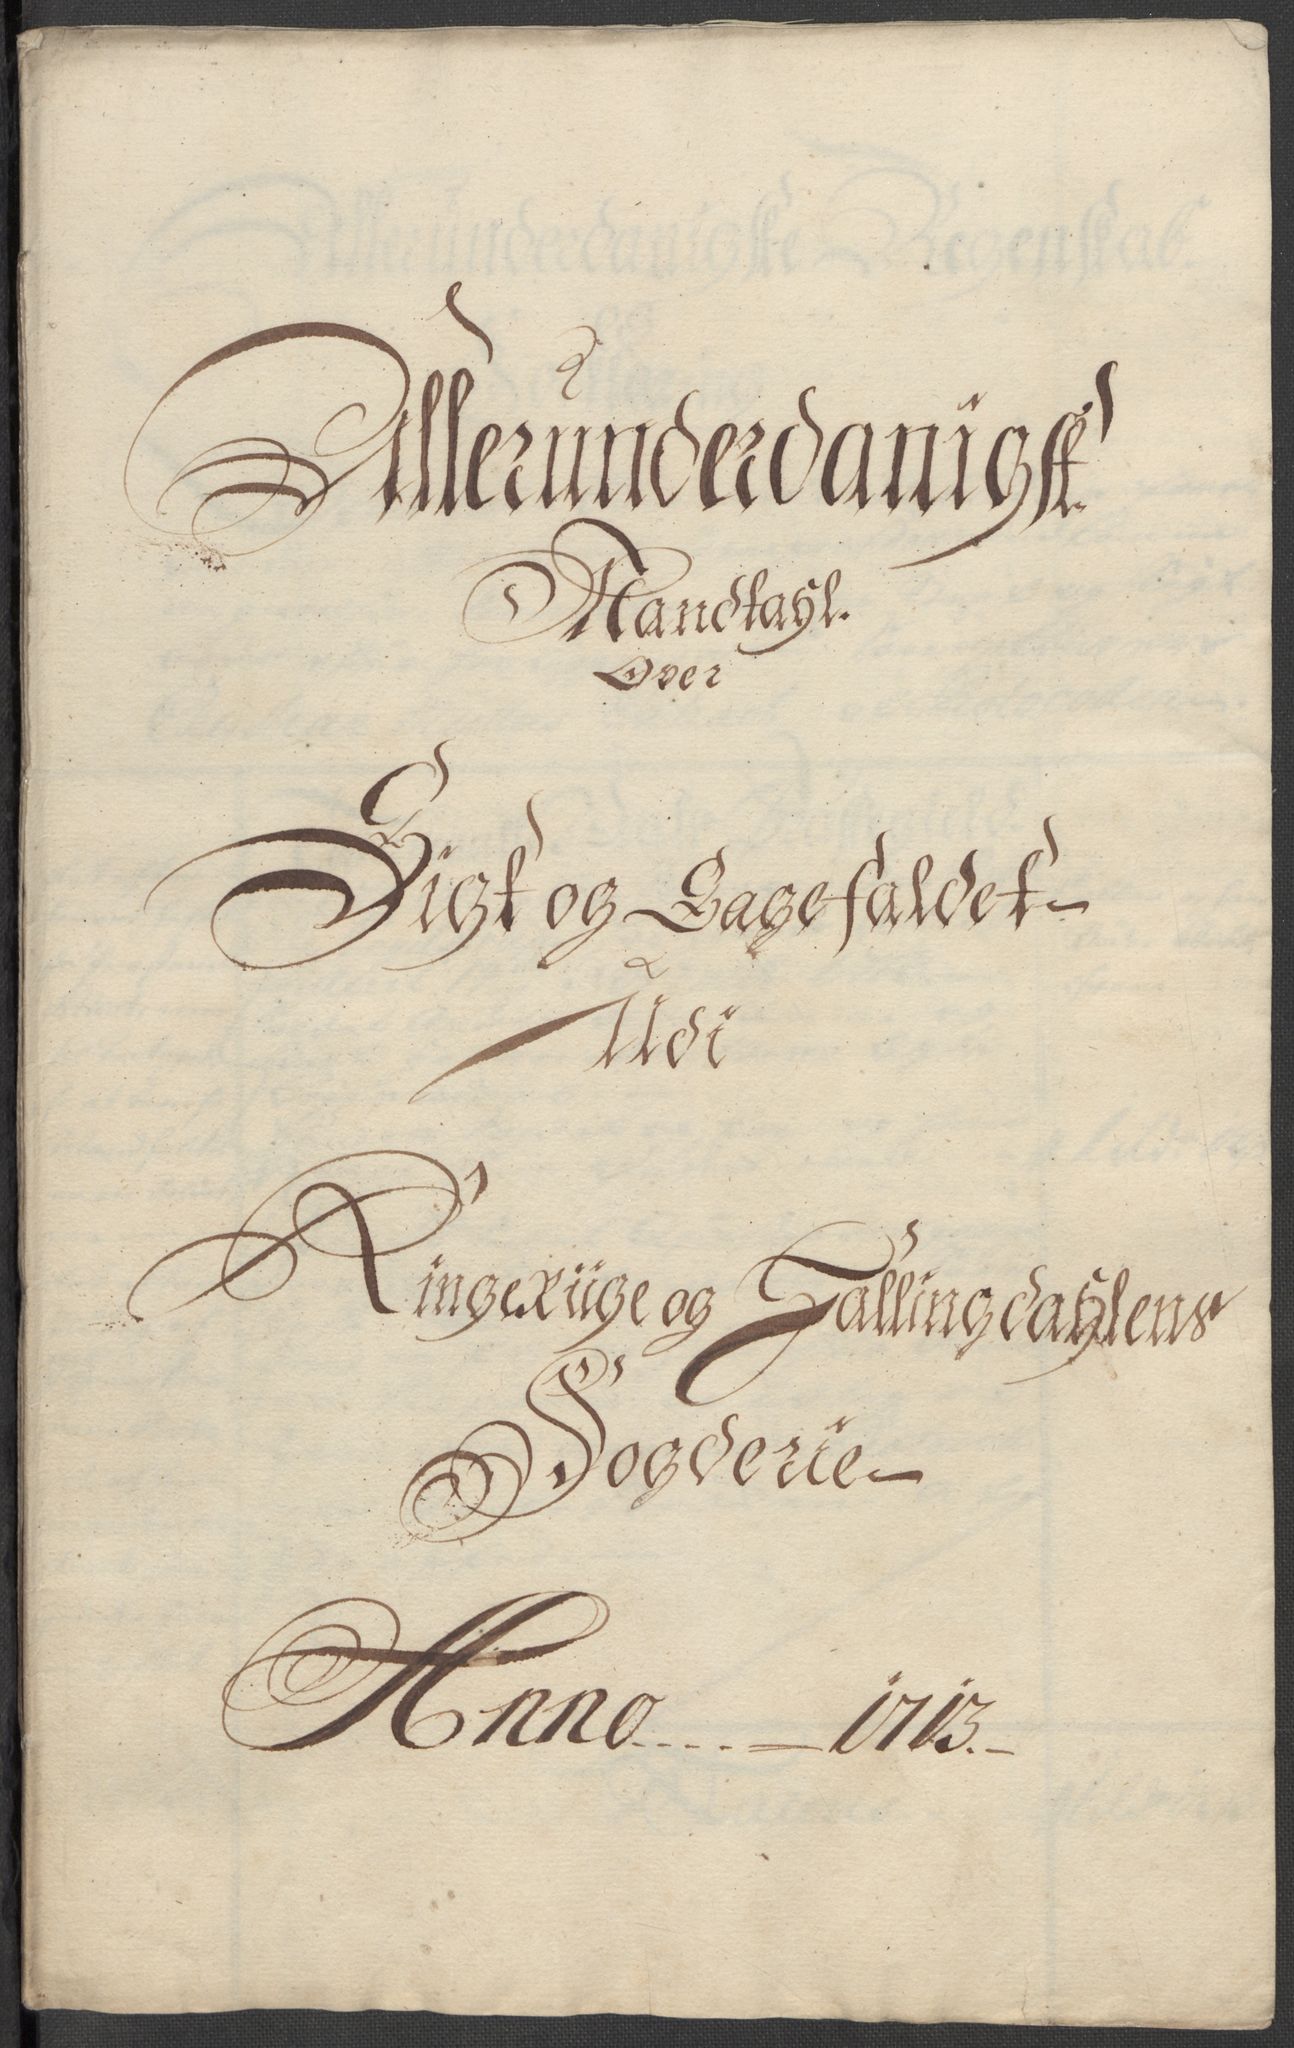 Allerunderdanigst.
Mandtahl.
Over
Sigt og Sagefaldet
Udi
Ringeriige og Hallingdahlens
Fogderie
Anno.... 1713.